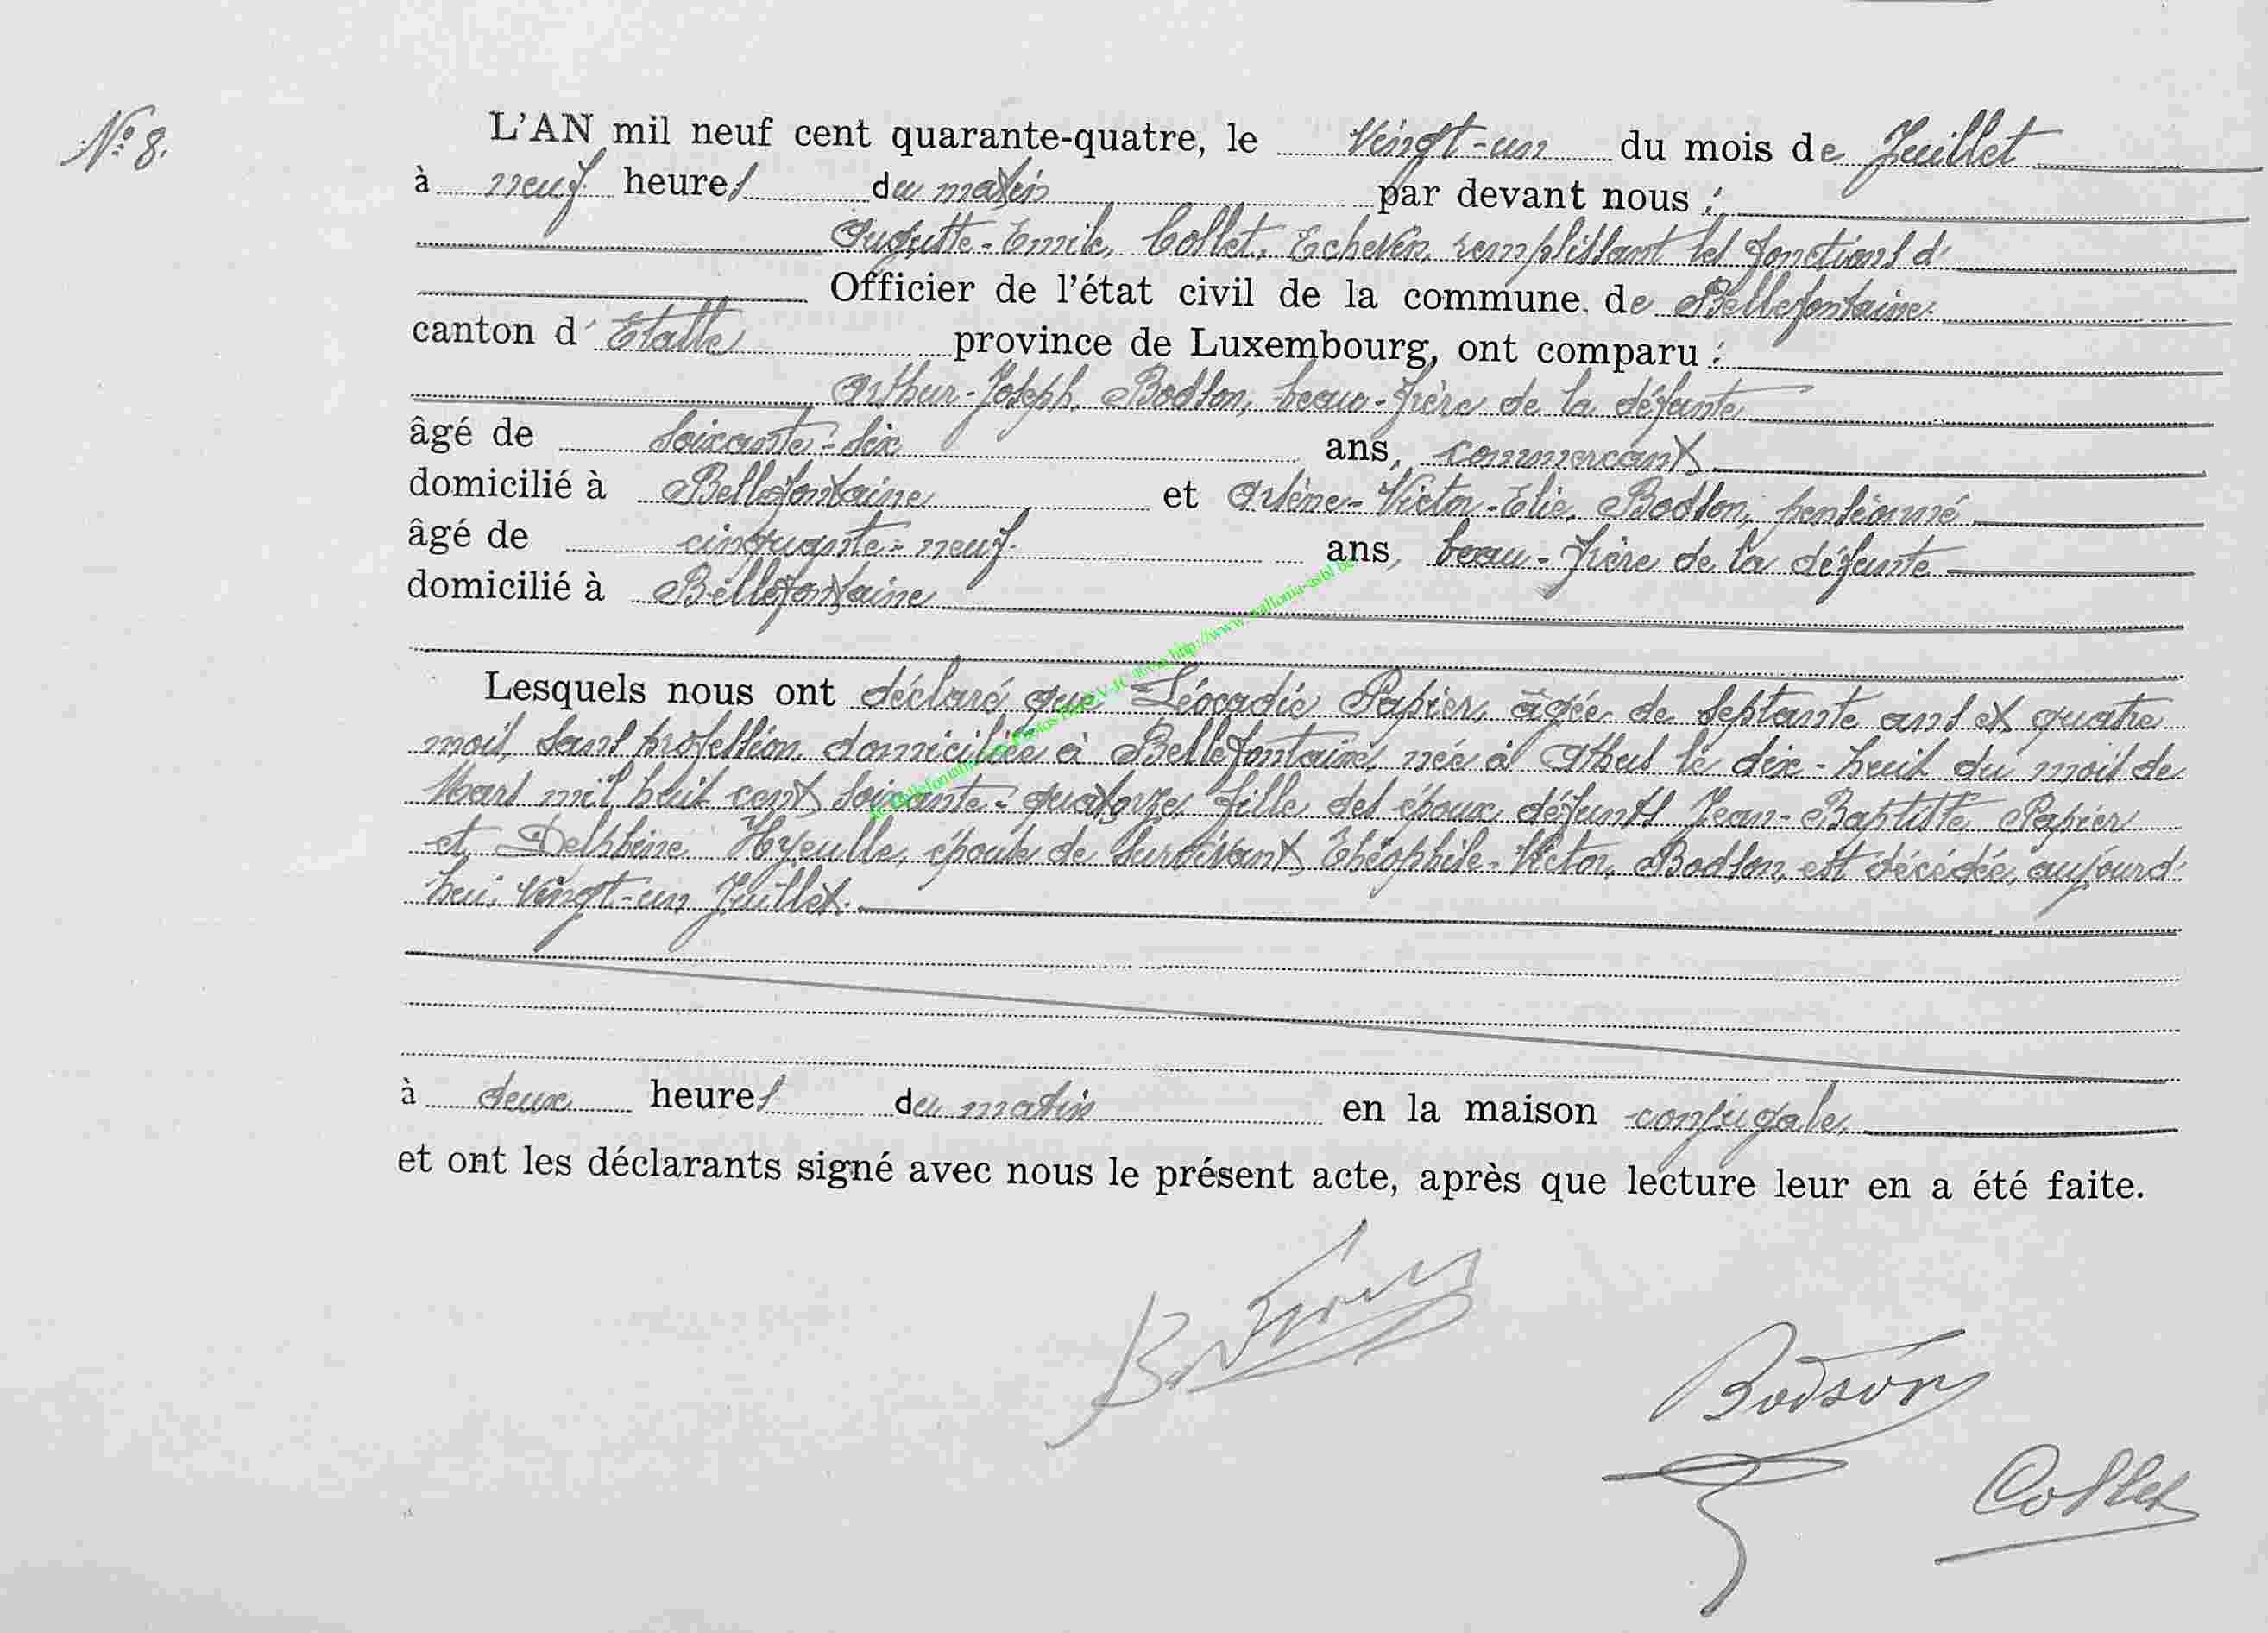 N° 8.
L'AN mil neuf cent quarante-quatre, le Vingt-un du mois de Juillet
à neuf heures du matin par devant nous :
Auguste-Emile, Collet, Echevin, remplissant les fonctions d'
Officier de l'état civil de la commune de Bellefontaine.
canton d'Etalle province de Luxembourg, ont comparu :
Arthur-Joseph, Bodson, beau-frère de la défunte
âgé de soixante-six ans, commerçant
domicilié à Bellefontaine et Arsène-Victor-Elie, Bodson, pensionné
âgé de cinquante-neuf ans, beau-frère de la défunte
domicilié à Bellefontaine
Lesquels nous ont déclaré que Léocadie Papier, âgée de septante ans et quatre
mois, sans profession, domiciliée à Bellefontaine, née à Athus le dix-huit du mois de
Mars mil huit cent soixante-quatorze, fille des époux défunts Jean-Baptiste Papier
et Delphine Hyeulle, épouse de survivant Théophile-Victor, Bodson, est décédée, aujourd'
hui, vingt-un Juillet.
à deux heures du matin en la maison conjugale,
et ont les déclarants signé avec nous le présent acte, après que lecture leur en a été faite.
Bodson
Collet